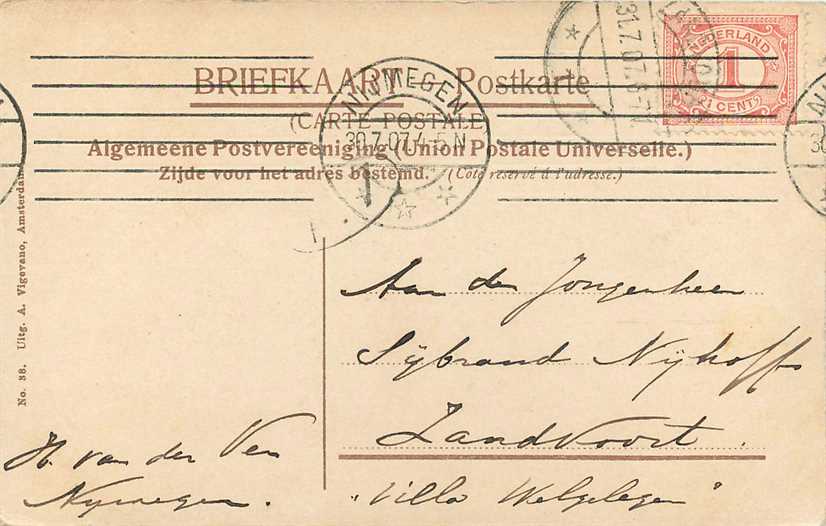 BRIEFKAART Postkarte
(CARTE POSTALE
Algemeene Postvereeniging (Union Postale Universelle.)
Zijde voor het adres bestemd. (Côté réservé à l'adresse.)
NIJMEGEN
30.7.07. 4-5 N
31.7.07. 6-7V
NEDERLAND
1
(1 CENT)
No. 38. Uitg. A. Vigevano, Amsterdam
Aan den Jongenheer
Sijbrand Nijhoff
Zandvoort.
"Villa Welgelegen"
H. van der Ven
Nymegen.